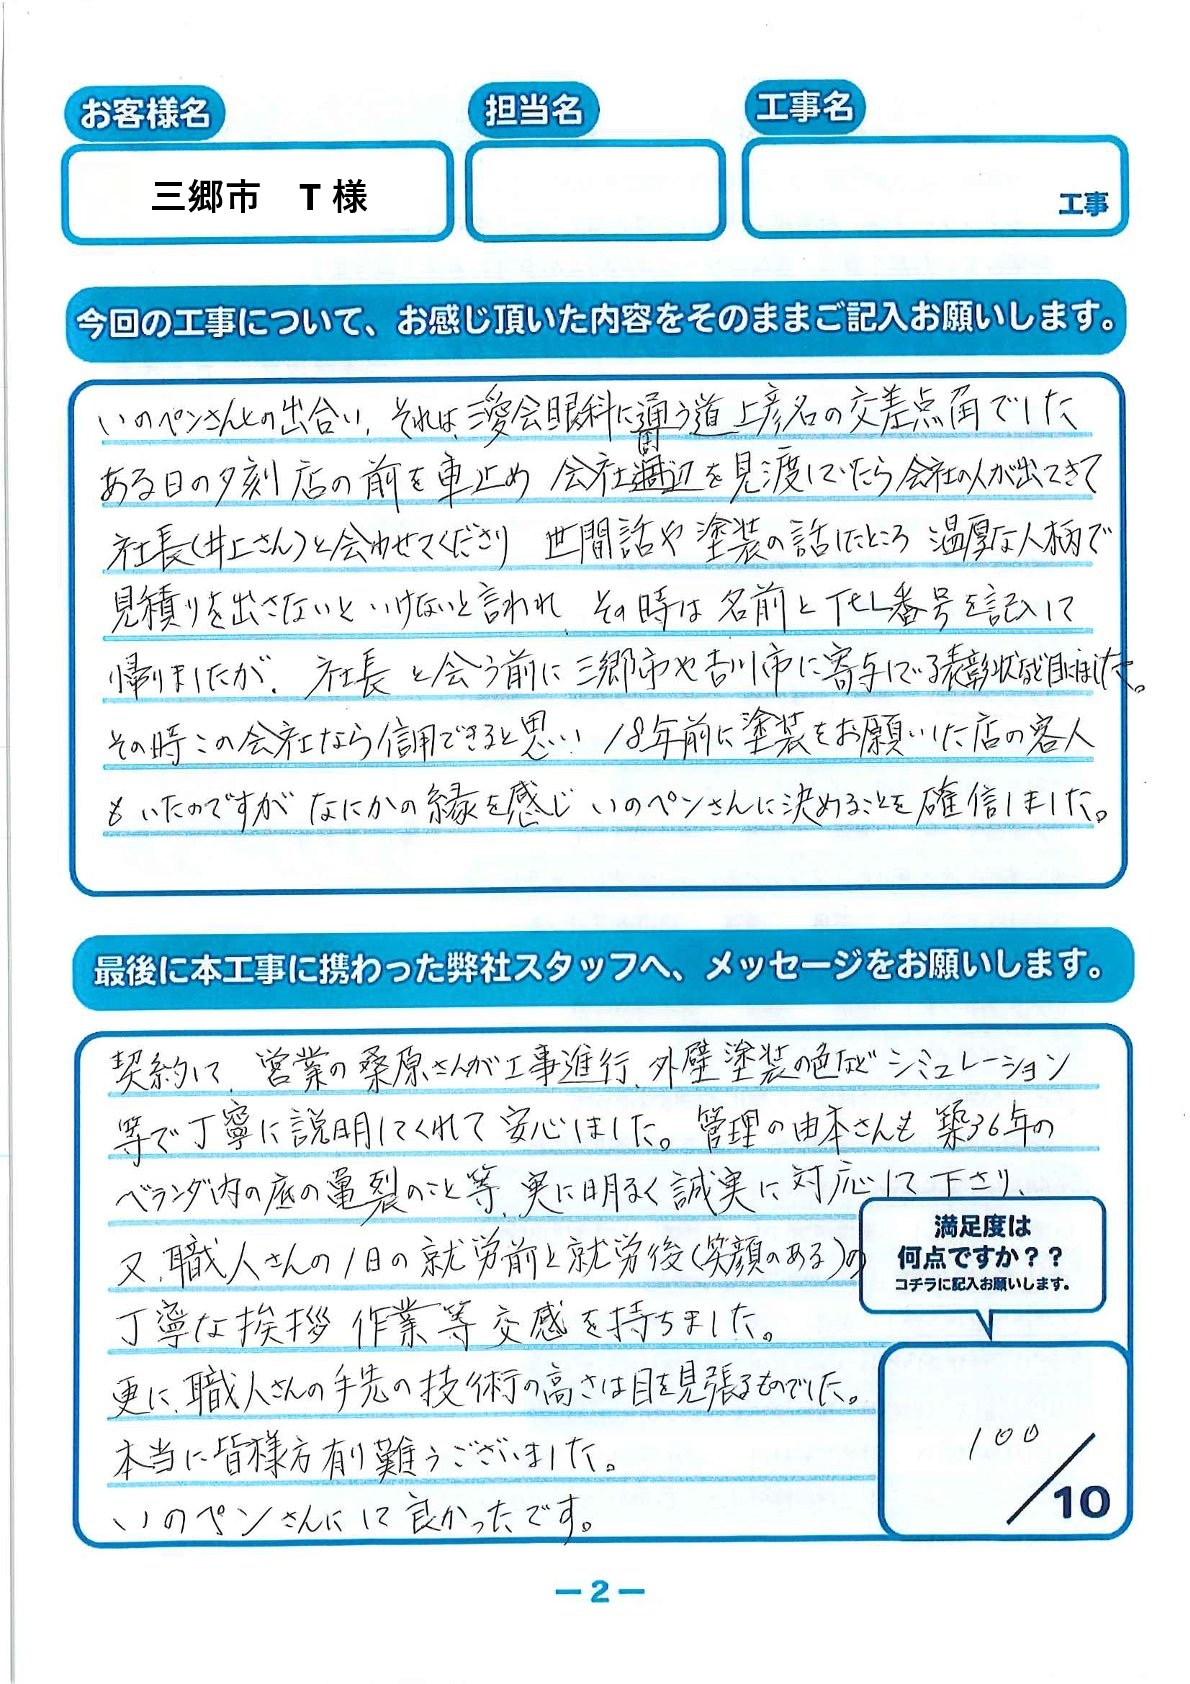 お客様名
担当名
工事名
三郷市 T様
工事
今回の工事について、お感じ頂いた内容をそのままご記入お願いします。
いのペンさんとの出合い、それは、三愛会眼科に通う道上彦名の交差点角でした
ある日の夕刻店の前を車止め 会社周辺を見渡していたら会社の人が出てきて
社長(井上さん)と会わせてくださり 世間話や塗装の話したところ 温厚な人柄で
見積りを出さないといけないと言われ その時は名前とTEL番号を記入して
帰りましたが、社長と会う前に三郷市や吉川市に寄与している表彰状など目にしました。
その時この会社なら信用できると思い 18年前に塗装をお願いした店の客人
もいたのですが なにかの縁を感じ いのペンさんに決めることを確信しました。
最後に本工事に携わった弊社スタッフへ、メッセージをお願いします。
契約して、営業の桑原さんが工事進行、外壁塗装の色など シミュレーション
等で丁寧に説明してくれて 安心しました。管理の由本さんも 築36年の
ベランダ内の底の亀裂のこと等、実に明るく誠実に対応して下さり、
又、職人さんの1日の就労前と就労後(笑顔のある)の
丁寧な挨拶 作業等 交感を持ちました。
更に、職人さんの手先の技術の高さは目を見張るものでした。
本当に皆様方有り難うございました。
いのペンさんにして良かったです。
満足度は
何点ですか??
コチラに記入お願いします。
100
/10
－2－